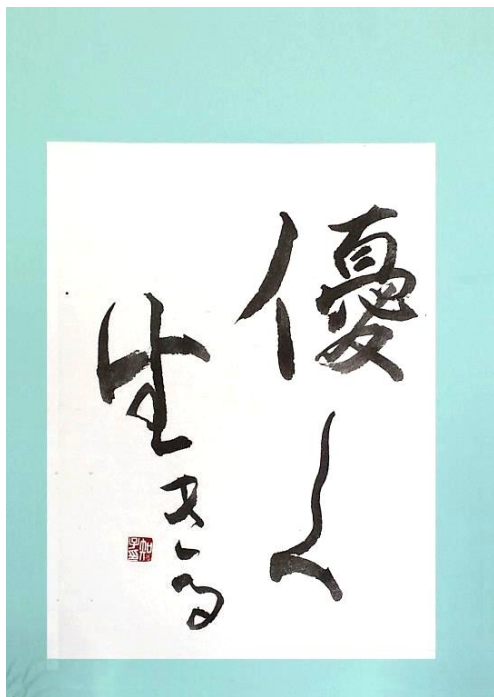 優しく
生きる